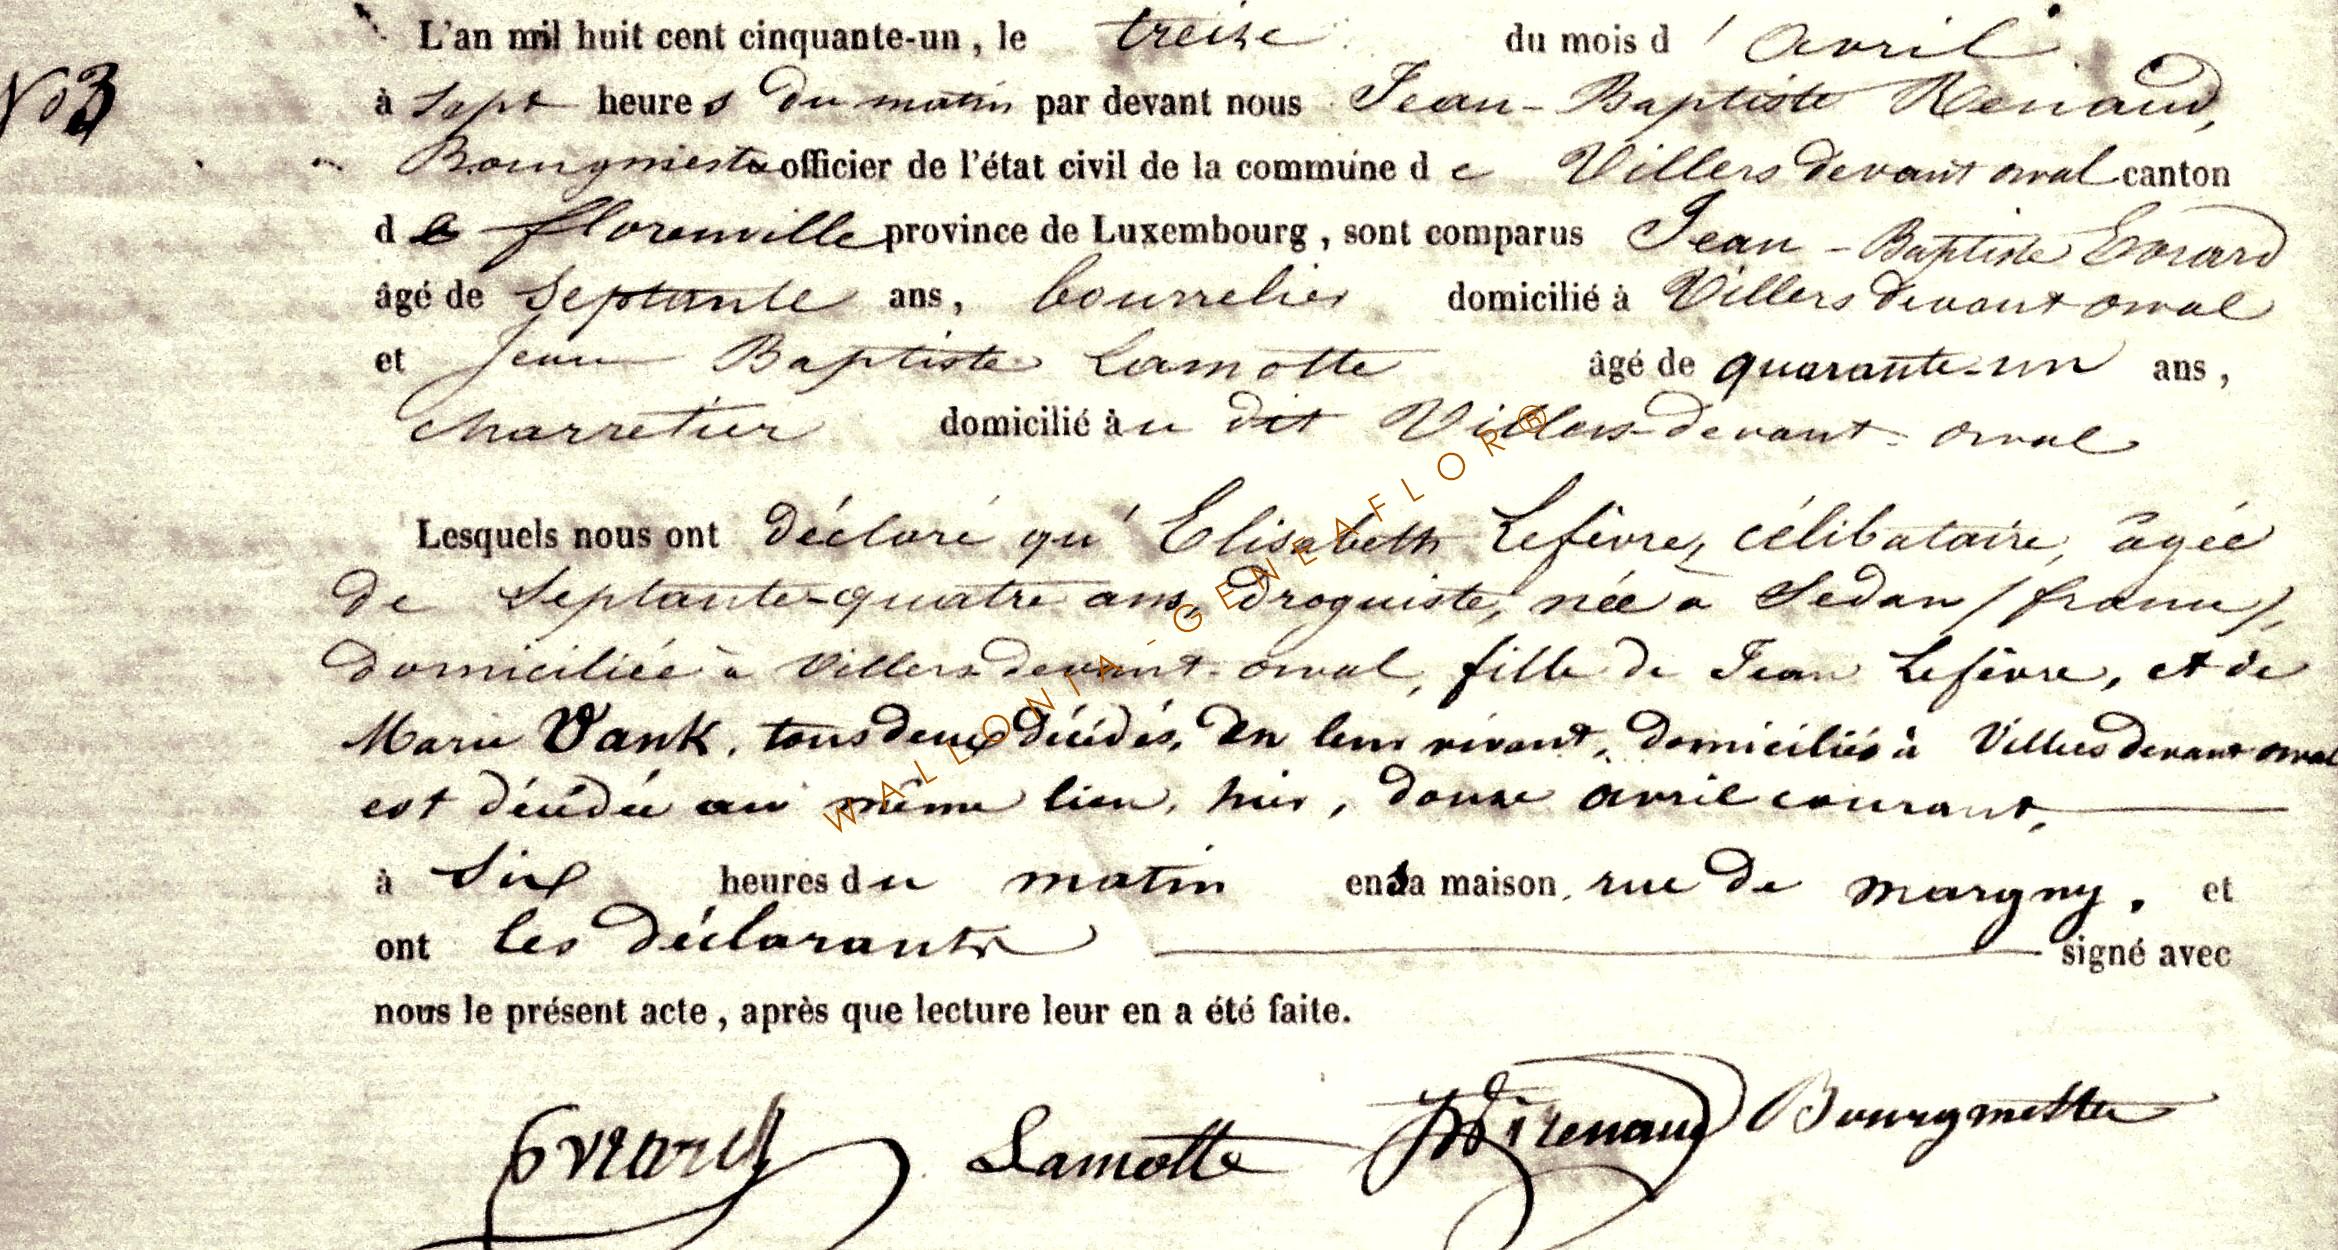 L'an mil huit cent cinquante-un, le treize du mois d' avril
No 3
à sept heures du matin par devant nous Jean-Baptiste Renaud,
Bourgmestre officier de l'état civil de la commune de Villers devant orval canton
de florenville province de Luxembourg, sont comparus Jean-Baptiste Evrard
âgé de Septante ans, bourrelier domicilié à Villers devant orval
et Jean Baptiste Lamotte âgé de quarante-un ans,
charretier domicilié àu dit Villers-devant-orval
Lesquels nous ont déclaré qu'Elisabeth Lefèvre, célibataire, âgée
de Septante-quatre ans, droguiste, née à Sedan (france),
domiciliée à Villers devant-orval, fille de Jean Lefèvre, et de
Marie Vank, tous deux décédés, en leur vivant, domiciliés à Villers devant orval
est décédée au même lieu, hier, douze avril courant,
à Six heures du matin en sa maison, rue de margny, et
ont les déclarants signé avec
nous le présent acte, après que lecture leur en a été faite.
Evrard Lamotte JB Renaud Bourgmestre
WALLONIA-GENEAFLOR®